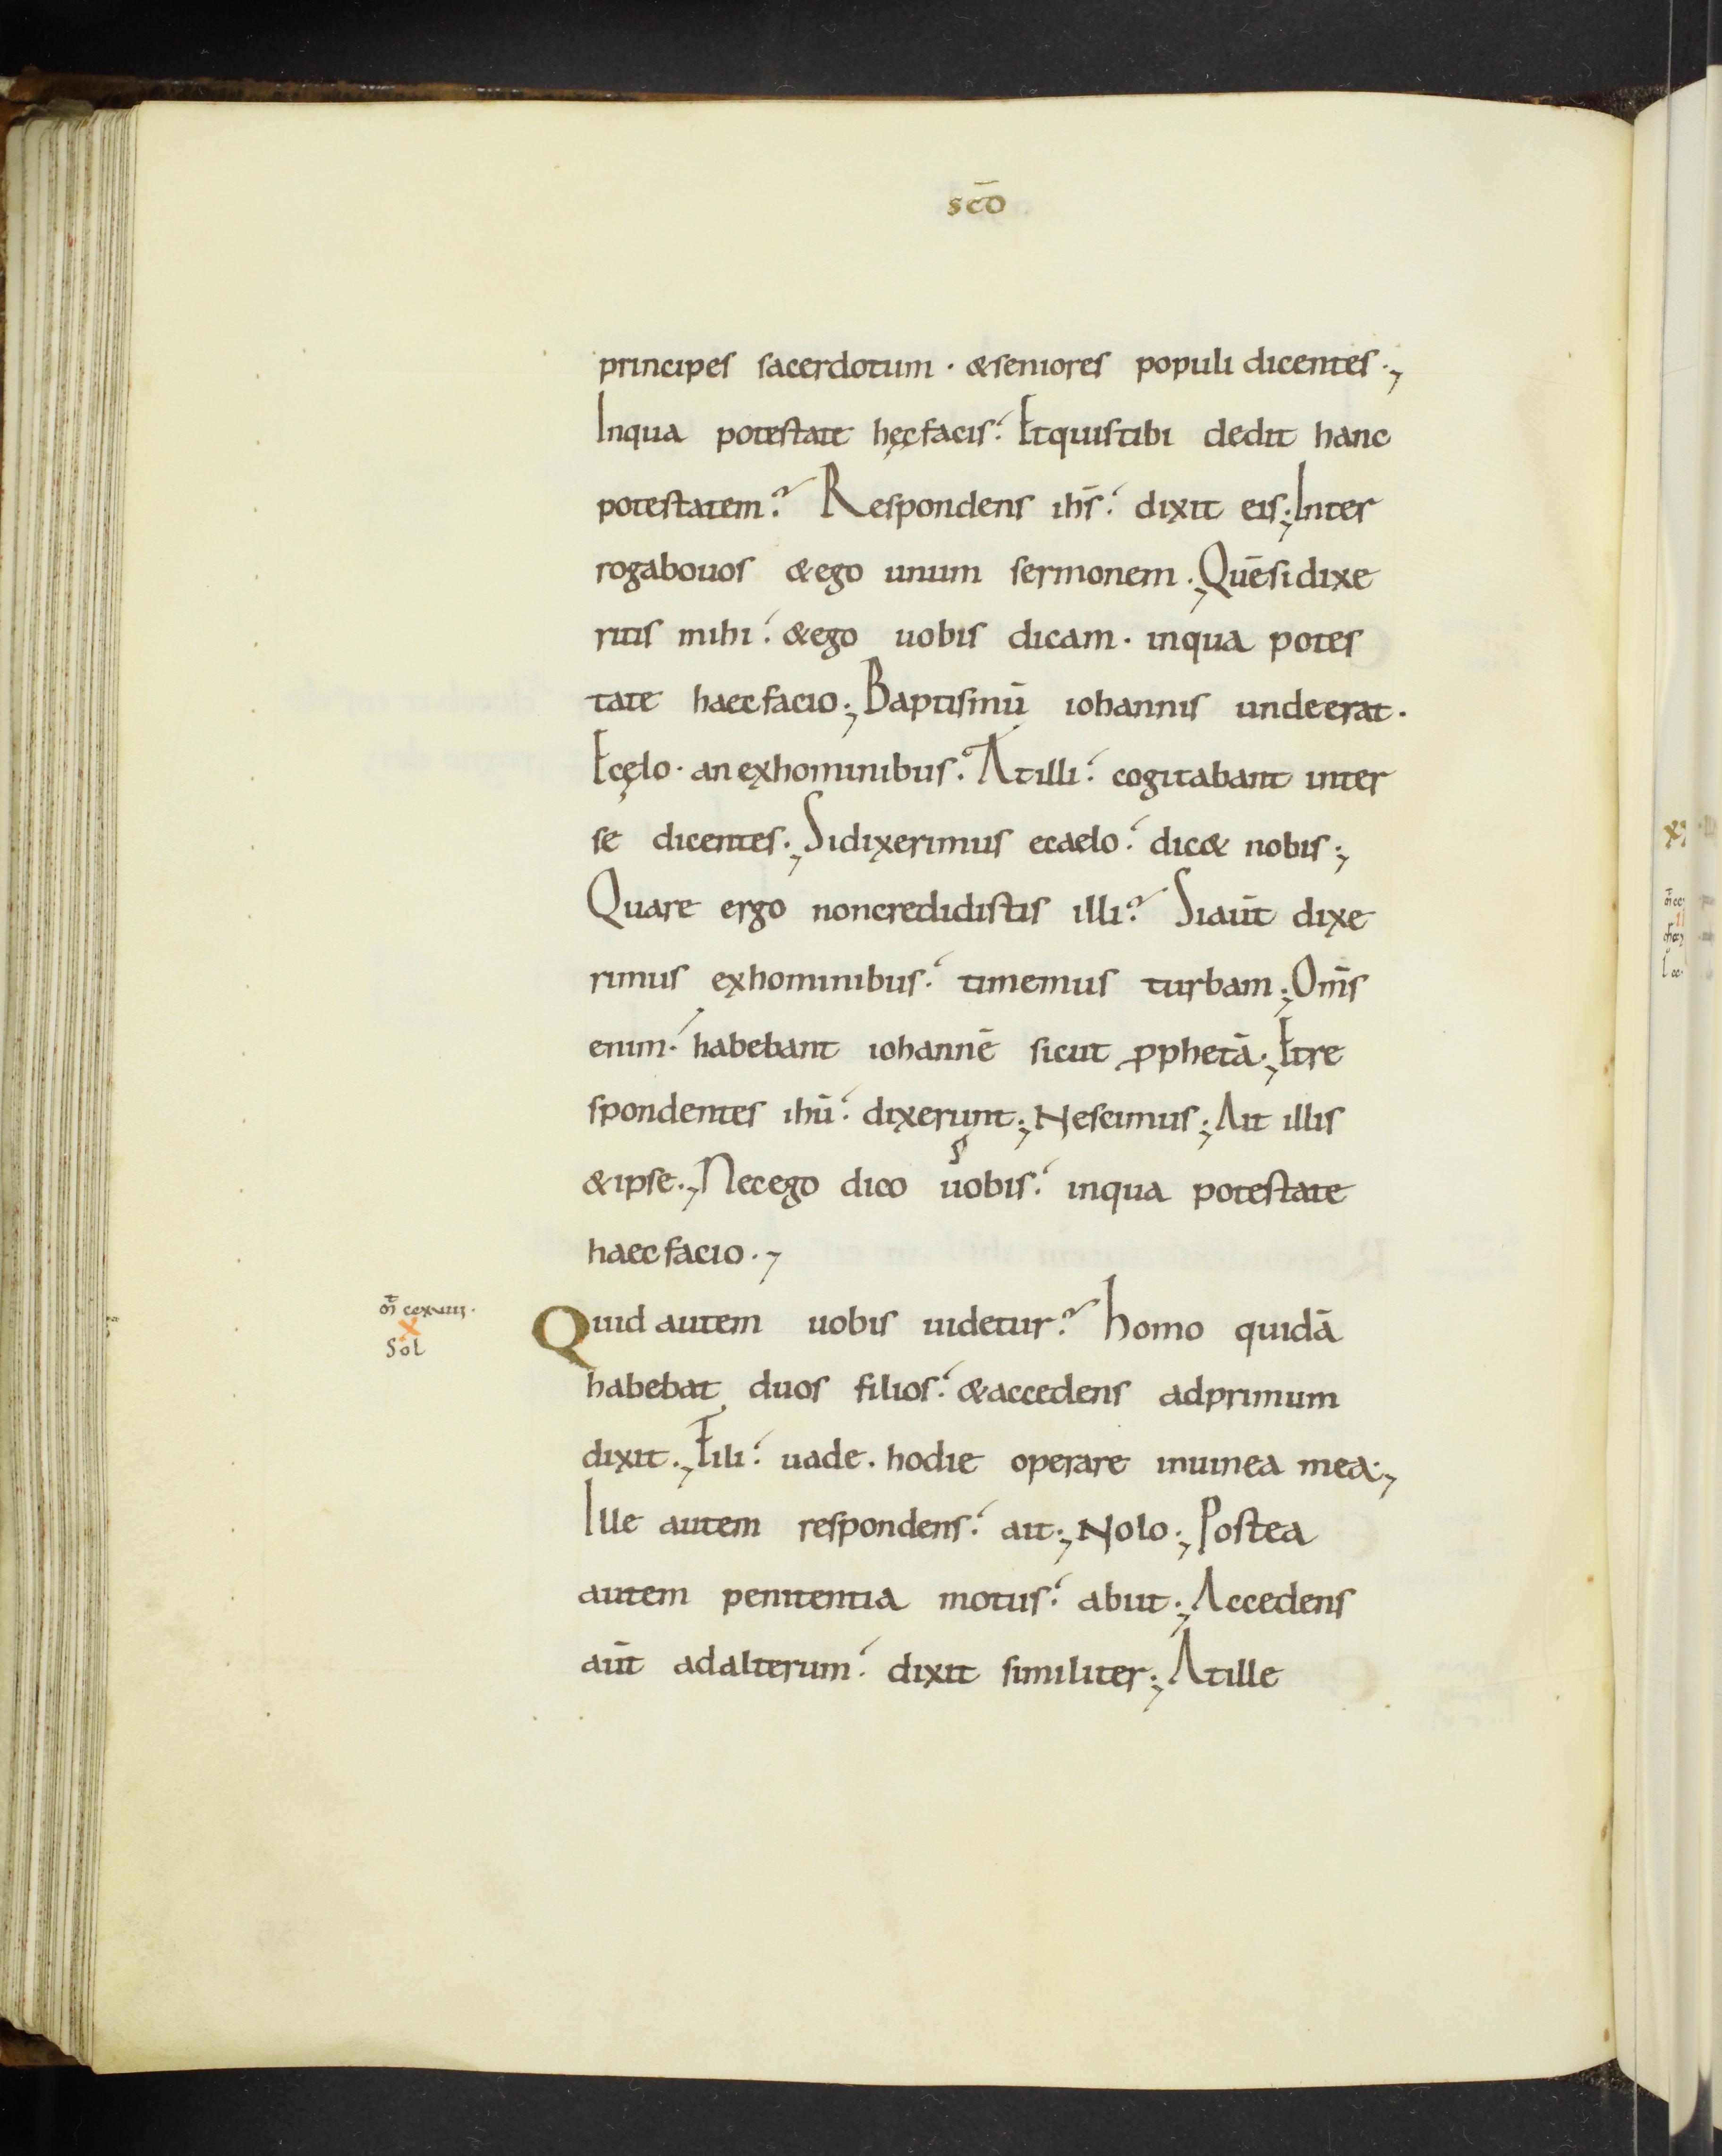 sc̄o
principes sacerdotum · & seniores populi dicentes .,
Inqua potestate hęc facis : Et quis tibi dedit hanc
potestatem ? Respondens ihs̄ : dixit eis ; Inter
rogabo uos & ego unum sermonem ., Quē si dixe
ritis mihi : & ego uobis dicam · inqua potes
tate haec facio ; Baptismū iohannis unde erat ·
E cęlo · an ex hominibus ? At illi : cogitabant inter
se dicentes ., Si dixerimus e caelo : dic& nobis ;
Quare ergo non credidistis illi ? Si aūt dixe
rimus ex hominibus : timemus turbam ; Om̄s
enim : habebant iohannē sicut ꝓphetā ., Et re
spondentes ihū : dixerunt ; Nescimus ; Ait illis
& ipse ., Nec ego dico uobis : inqua potestate
haec facio .,
m̄t ccxuiiii ·
X
Sol
Quid autem uobis uidetur ? homo quidā
habebat duos filios : & accedens ad primum
dixit ., Fili : uade · hodie operare in uinea mea ;
Ille autem respondens : ait ; Nolo ; Postea
autem penitentia motus : abiit ., Accedens
aūt ad alterum : dixit similiter ; At ille